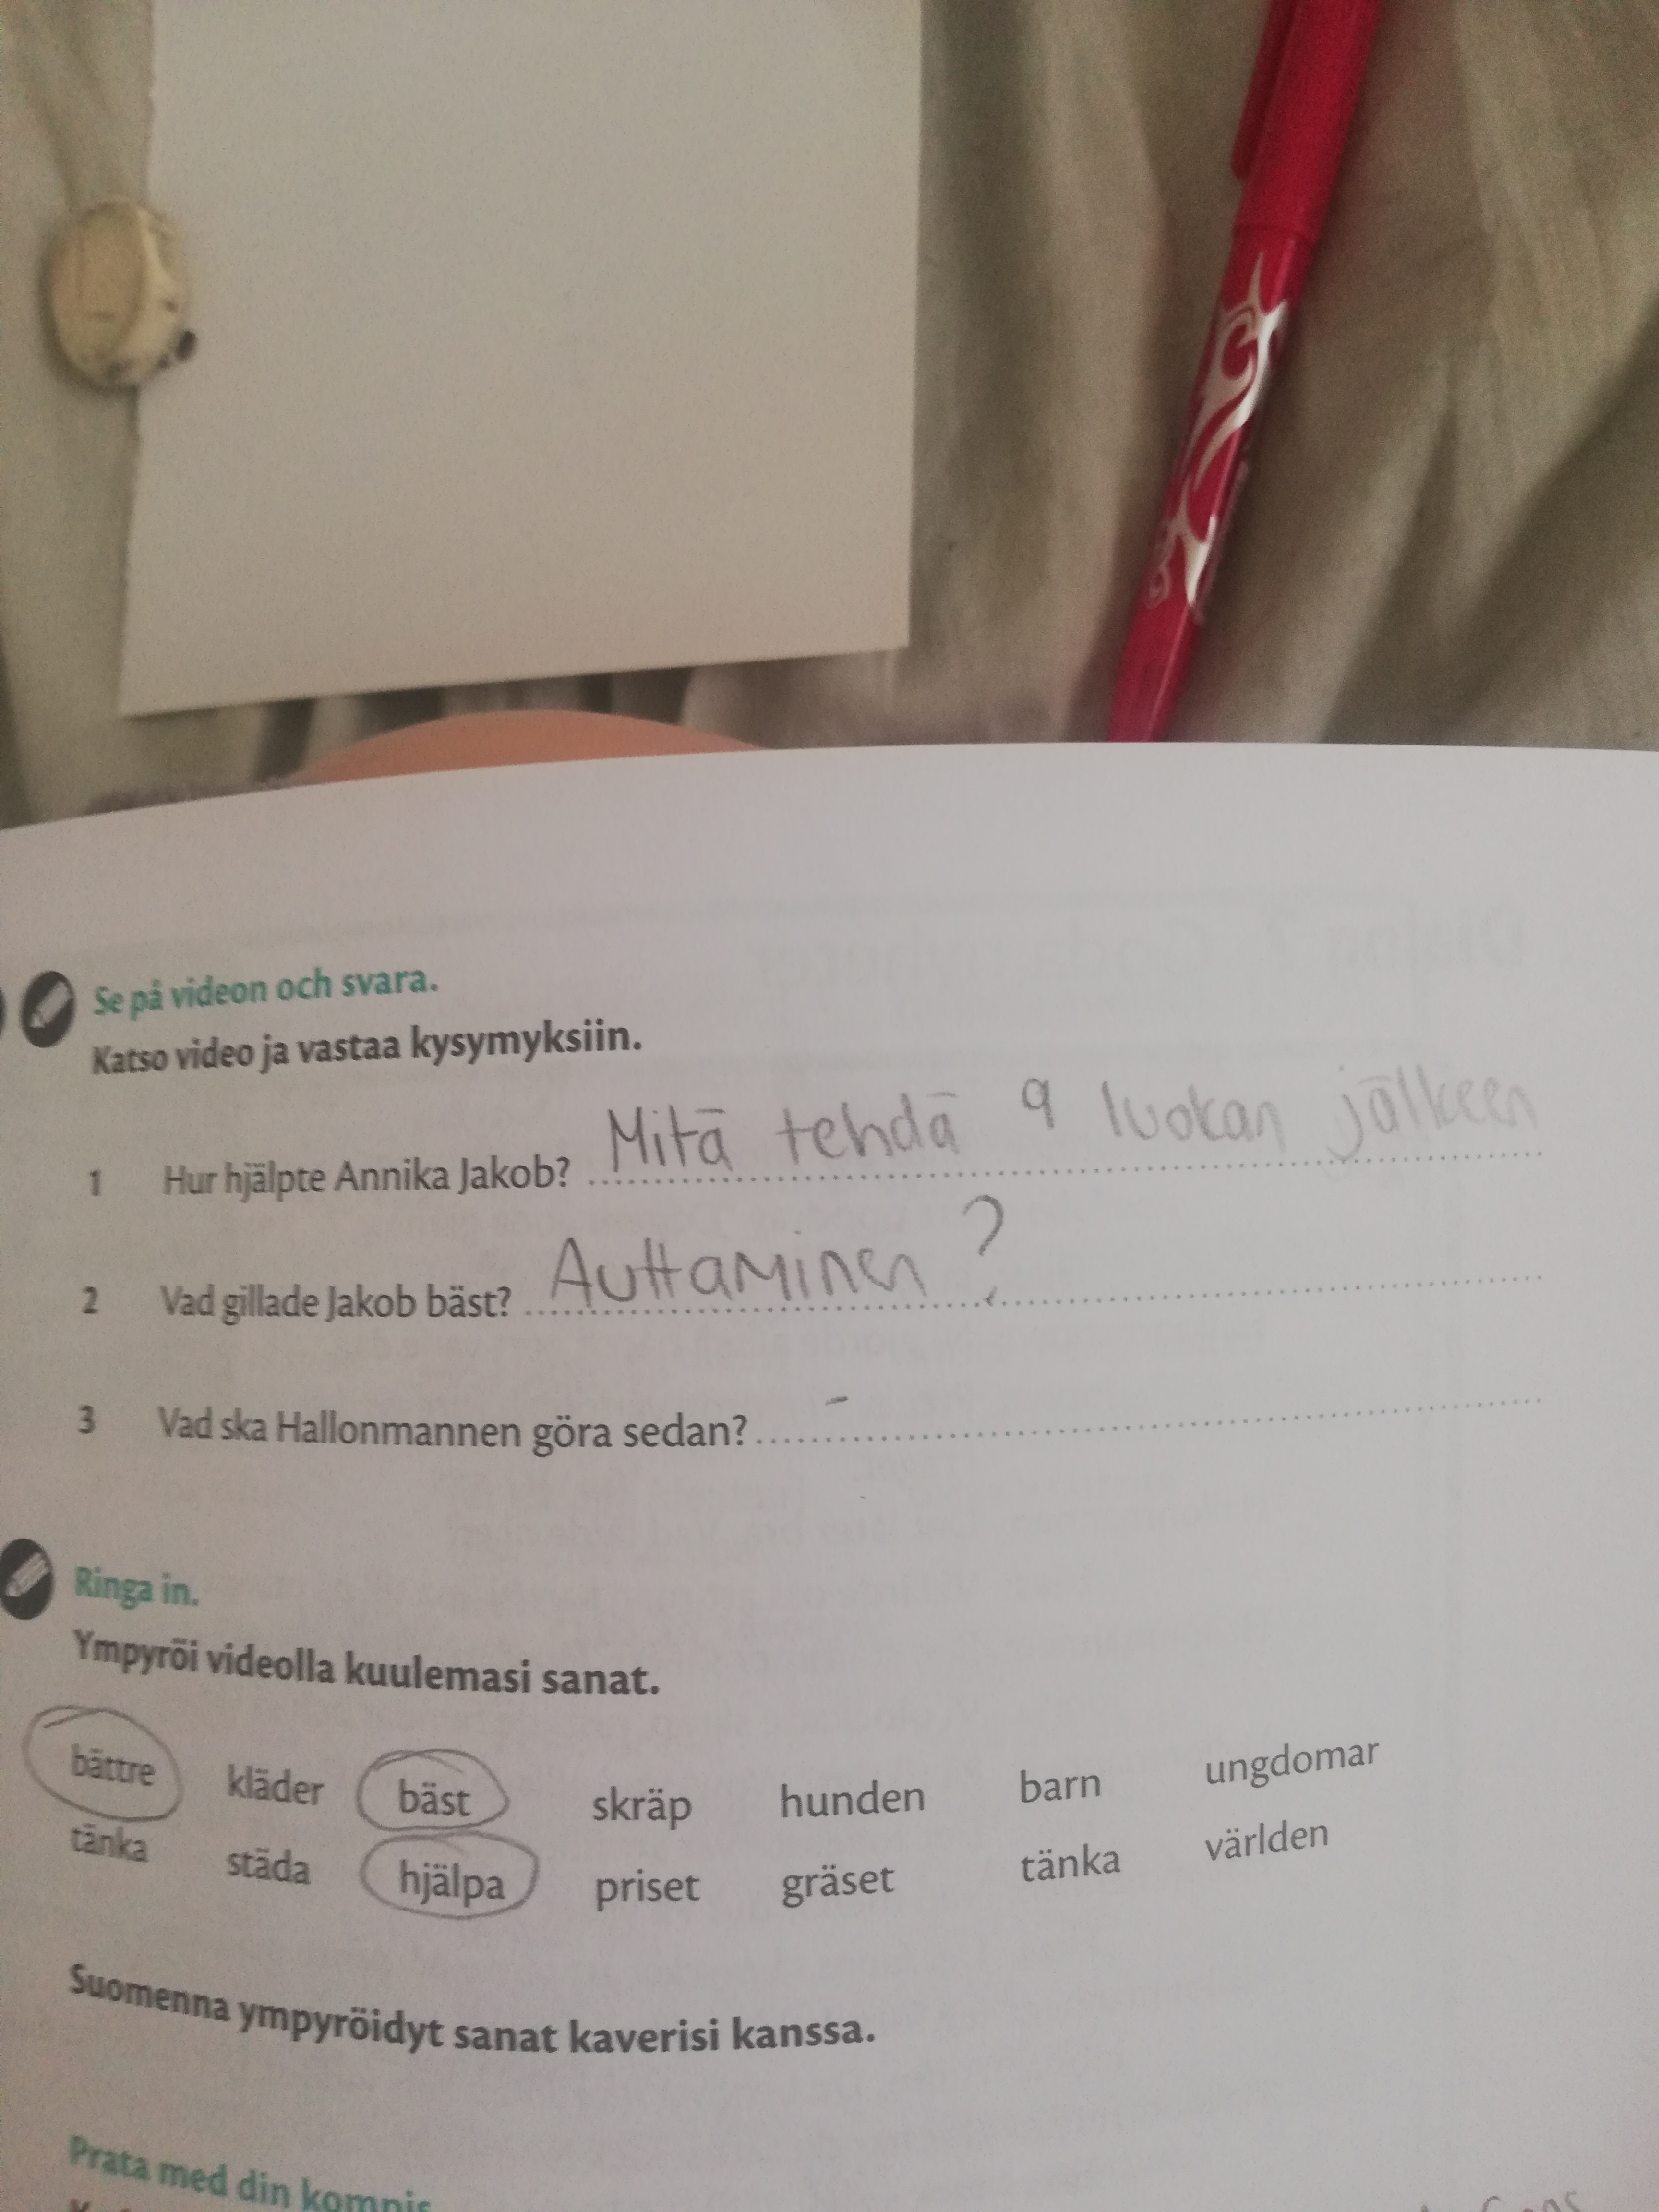 Se på videon och svara.
Katso video ja vastaa kysymyksiin.
1 Hur hjälpte Annika Jakob? Mitä tehdä 9 luokan jälkeen
2 Vad gillade Jakob bäst? Auttaminen ?
3 Vad ska Hallonmannen göra sedan? -
Ringa in.
Ympyröi videolla kuulemasi sanat.
bättre kläder bäst skräp hunden barn ungdomar
tänka städa hjälpa priset gräset tänka världen
Suomenna ympyröidyt sanat kaverisi kanssa.
Prata med din kompis